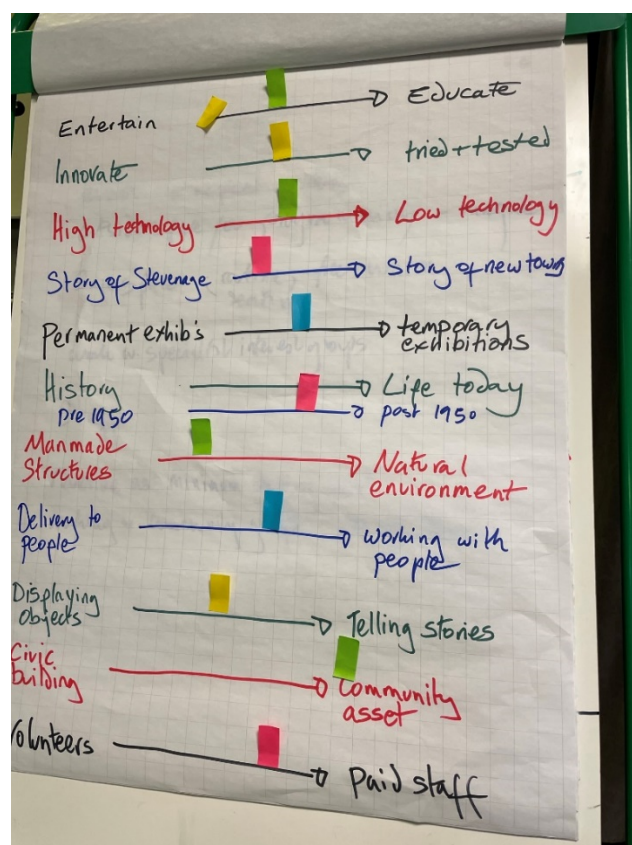 Entertain Educate
Innovate tried + tested
High technology Low technology
Story of Stevenage Story of new towns
Permanent exhib's temporary
exhibitions
History Life today
pre 1950 post 1950
Manmade
Structures
Natural
environment
Delivery to
people
working with
people
Displaying
objects
Telling stories
Civic
building
Community
asset
Volunteers paid staff